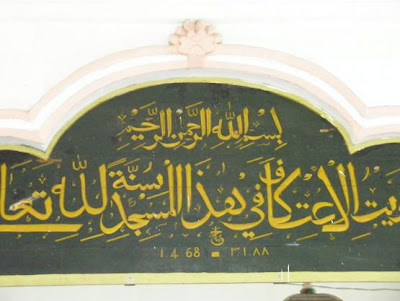 بِسْمِ اللهِ الرَّحْمٰنِ الرَّحِيْمِ
ويت الاعتكاف في هذا المسجد سنة لله تعا
1468